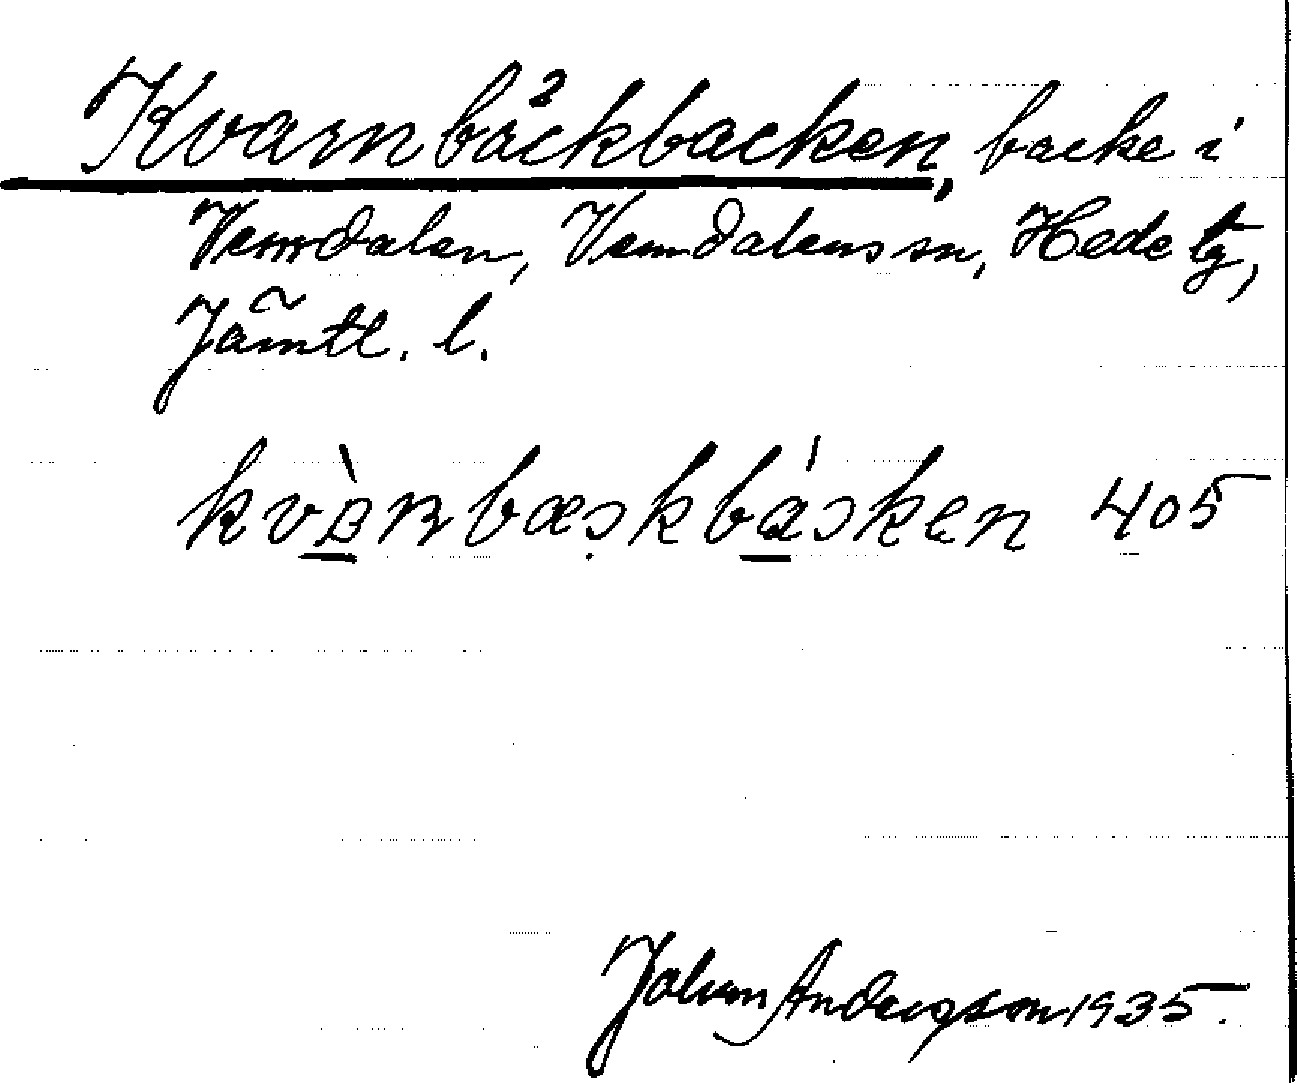 Kvarnbäckbacken, backe i
Vemdalen, Vemdalens sn, Hede tg,
Jämtl. l.
kvɒ̀nbæskbásken 405
Johan Anderson 1935.